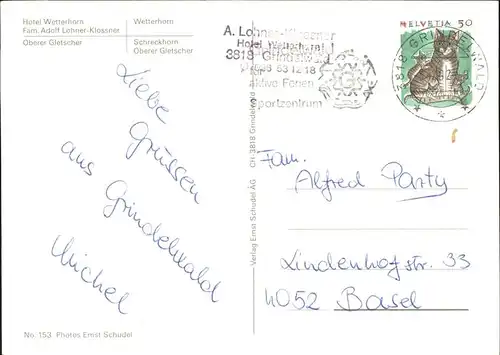 Hotel Wetterhorn
Fam. Adolf Lohner-Klossner
Oberer Gletscher
Wetterhorn
Schreckhorn
Oberer Gletscher
A. Lohner-Klossner
Hotel Wetterhorn
3818 Grindelwald
Aktive Ferien
Sportzentrum
HELVETIA 50
3818 GRINDELWALD
Liebe
Grüssen
aus
Grindelwald
Michel
CH-3818 Grindelwald
Verlag Ernst Schudel AG
Fam.
Alfred Party
Lindenhofstr. 33
4052 Basel
No. 153 Photos Ernst Schudel